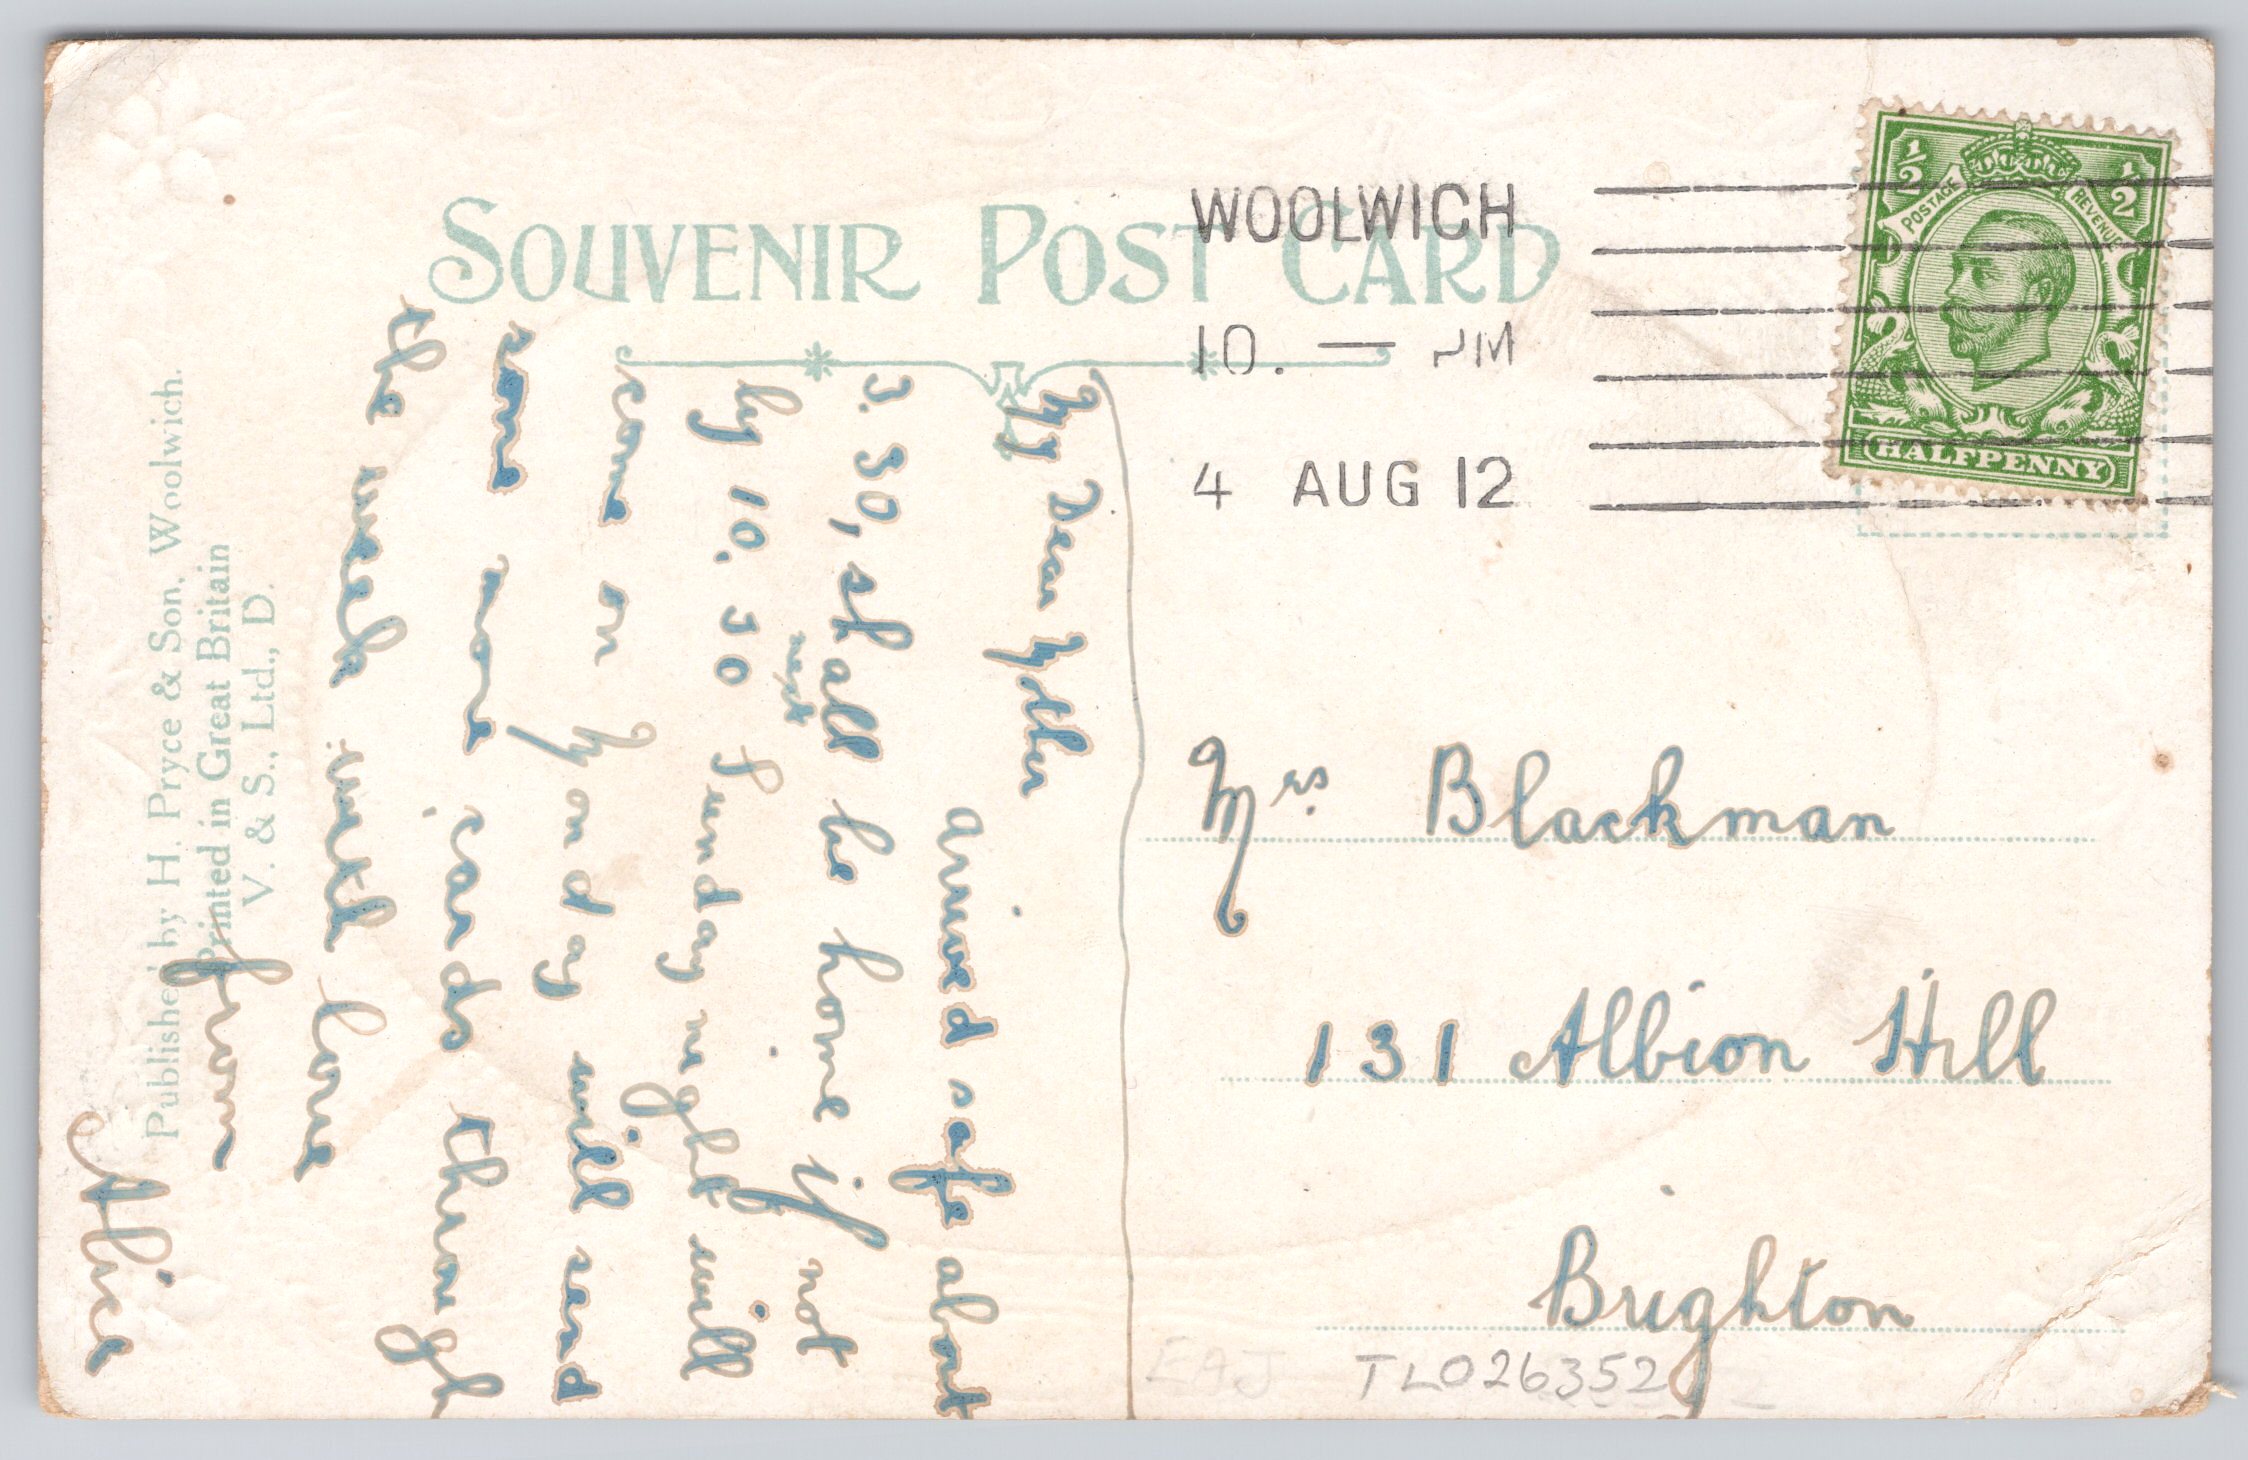 SOUVENIR POST CARD
WOOLWICH
10. — PM
4 AUG 12
½ ½
POSTAGE REVENUE
HALFPENNY
My Dear Mother
arrived safe about
3.30, shall be home if not
next
by 10.30 Sunday night will
come on Monday will send
some more cards through
the week with love
from
Alice
Mrs. Blackman
131 Albion Hill
Brighton
EAJ TL026352
Published by H. Pryce & Son, Woolwich.
Printed in Great Britain
V. & S., Ltd., D.